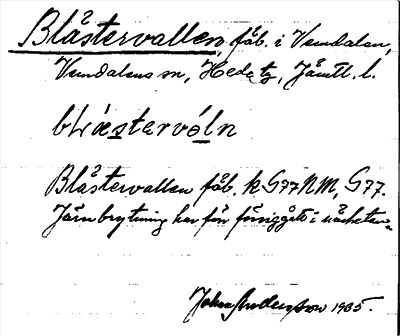 Blåstervallen, fäb. i Vemdalen,
Vemdalens sn, Hede tg, Jämtl. l.
blåstervóln
Blåstervallen fäb. k G77NM, G77.
Järnbrytning har för försiggått i närheten.
1935.